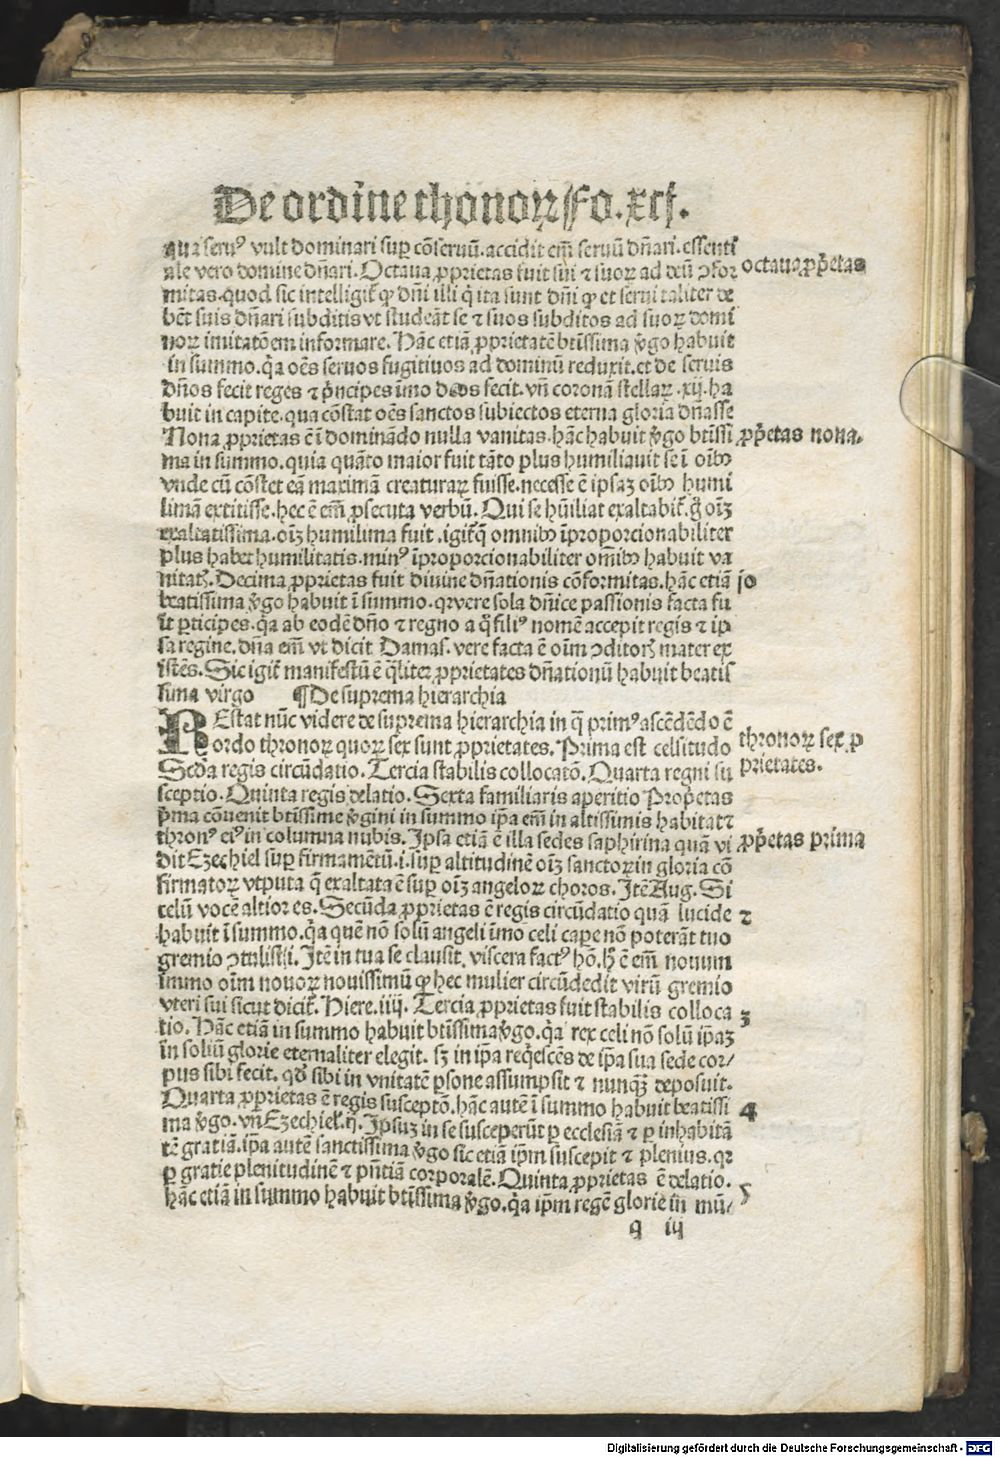 De ordine thonoꝝ Fo. xcj.
qua seruꝰ vult dominari suꝑ cōseruū. accidit em̄ seruū dn̄ari. essenti
ale vero domine dn̄ari. Octaua ꝓprietas fuit sui ⁊ suoꝝ ad deū ↄfor
mitas. quod sic intelligit̄ ꝙ dn̄i illi q̇ ita sunt dn̄i ꝙ et serui taliter de
bēt suis dn̄ari subditis vt studeāt se ⁊ suos subditos ad suoꝝ domi
noꝝ imitatōem informare. Hāc etiā ꝓprietatē btīssima v̇go habuit
in summo. q̇a oēs seruos fugitiuos ad dominū reduxit. et de seruis
dn̄os fecit reges ⁊ pͥncipes īmo deos fecit. vn̄ coronā stellaꝝ .xij. ha
buit in capite. qua cōstat oēs sanctos subiectos eterna gloria dn̄asse
Nona ꝓprietas ē ī dominādo nulla vanitas. hāc habuit v̇go btīssi
ma in summo. quia quāto maior fuit tāto plus humiliauit se ī oībꝰ
vnde cū cōstet eā maximā creaturaꝝ fuisse. necesse ē ipsaꝫ oībꝰ humi
limā extitisse. hec ē em̄ ꝓsecuta verbū. Qui se hūiliat exaltabit̄. g̊ oīꝫ
exaltatissima. oīꝫ humilima fuit. igit̄ q̄ omnibꝰ īproporcionabiliter
plus habet humilitatis. minꝰ īproporcionabiliter om̄ibꝰ habuit va
nitatꝭ. Decima ꝓprietas fuit diuine dn̄ationis cōformitas. hāc etiā
beatissima v̇go habuit ī summo. qꝛ vere sola dn̄ice passionis facta fu
it ꝑticipes. q̇a ab eodē dn̄o ⁊ regno a q̊ filiꝰ nomē accepit regis ⁊ ip
sa regine. dn̄a em̄ vt dicit Damas. vere facta ē oīm ↄditorꝭ mater ex
istēs. Sic igit̄ manifestū ē q̄liter ꝓprietates dn̄ationū habuit beatis
sima virgo ¶ De suprema hierarchia
REstat nūc videre de suprema hierarchia in q̄ primꝰ ascēdēdo ē
ordo thronoꝝ quoꝝ sex sunt ꝓprietates. Prima est celsitudo
Secūda regis circūdatio. Tercia stabilis collocatō. Quarta regni su
sceptio. Quinta regis delatio. Sexta familiaris aperitio Prop̄etas
pͥma cōuenit btīssime v̇gini in summo ip̄a em̄ in altissimis habitat ⁊
thronꝰ eiꝰ in columna nubis. Ipsa etiā ē illa sedes saphirina quā vi
dit Ezechiel suꝑ firmamētū .i. suꝑ altitudinē oīꝫ sanctoꝝ in gloria cō
firmatoꝝ vtputa q̄ exaltata ē suꝑ oīꝫ angeloꝝ choros. Itē Aug. Si
celū vocē altior es. Secūda ꝓprietas ē regis circūdatio quā lucide
habuit ī summo. q̇a quē nō solū angeli īmo celi capere nō poterāt tuo
gremio ↄtulisti. Itē in tua se clausit viscera factꝰ hō. hͦ ē em̄ nouum
immo oīm nouoꝝ nouissimū ꝙ hec mulier circūdedit virū gremio
vteri sui sicut dicit̄. Hiere. iiij. Tercia ꝓprietas fuit stabilis colloca
tio. Hāc etiā in summo habuit btīssima v̇go. q̇a rex celi nō solū ip̄aꝫ
in soliū glorie eternaliter elegit. sꝫ in ip̄a reqͥescēs de ip̄a sua sede cor/
pus sibi fecit. qd̄ sibi in vnitatē ꝑsone assumpsit ⁊ nunqͣꝫ deposuit.
Quarta ꝓprietas ē regis susceptō. hāc autē ī summo habuit beatissi
ma v̇go. vn̄ Ezechiel. ij. Ipsuꝫ in se susceperūt ꝑ ecclesiā ⁊ ꝑ inhabitā
tē gratiā. ip̄a autē sanctissima v̇go sic etiā ip̄m suscepit ⁊ plenius. qꝛ
ꝑ gratie plenitudinē ⁊ pn̄tiā corporalē. Quinta ꝓprietas ē delatio.
hāc etiā in summo habuit btīssima v̇go. q̇a ip̄m regē glorie in mū/
q iij
octaua ꝓp̄etas
ꝓp̄etas nona.
jo
thronoꝝ sex ꝓ
prietates.
ꝓp̄etas prima
2
3
4
5
Digitalisierung gefördert durch die Deutsche Forschungsgemeinschaft - DFG